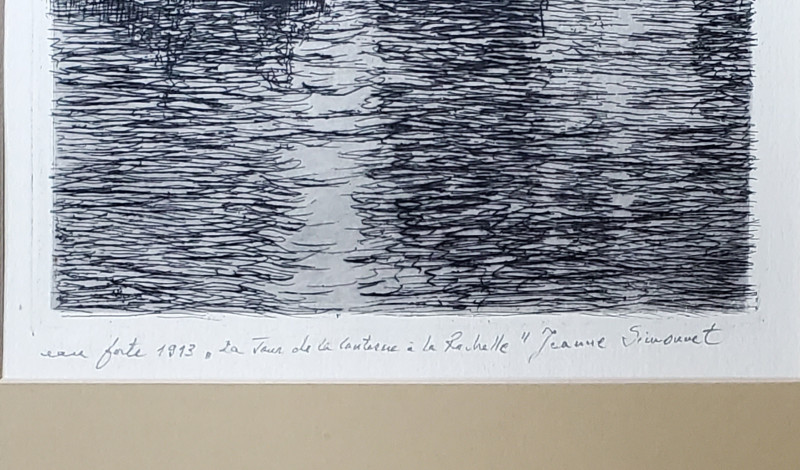 eau forte 1913 „La Tour de la lanterne à la Rochelle" Jeanne Simonnet